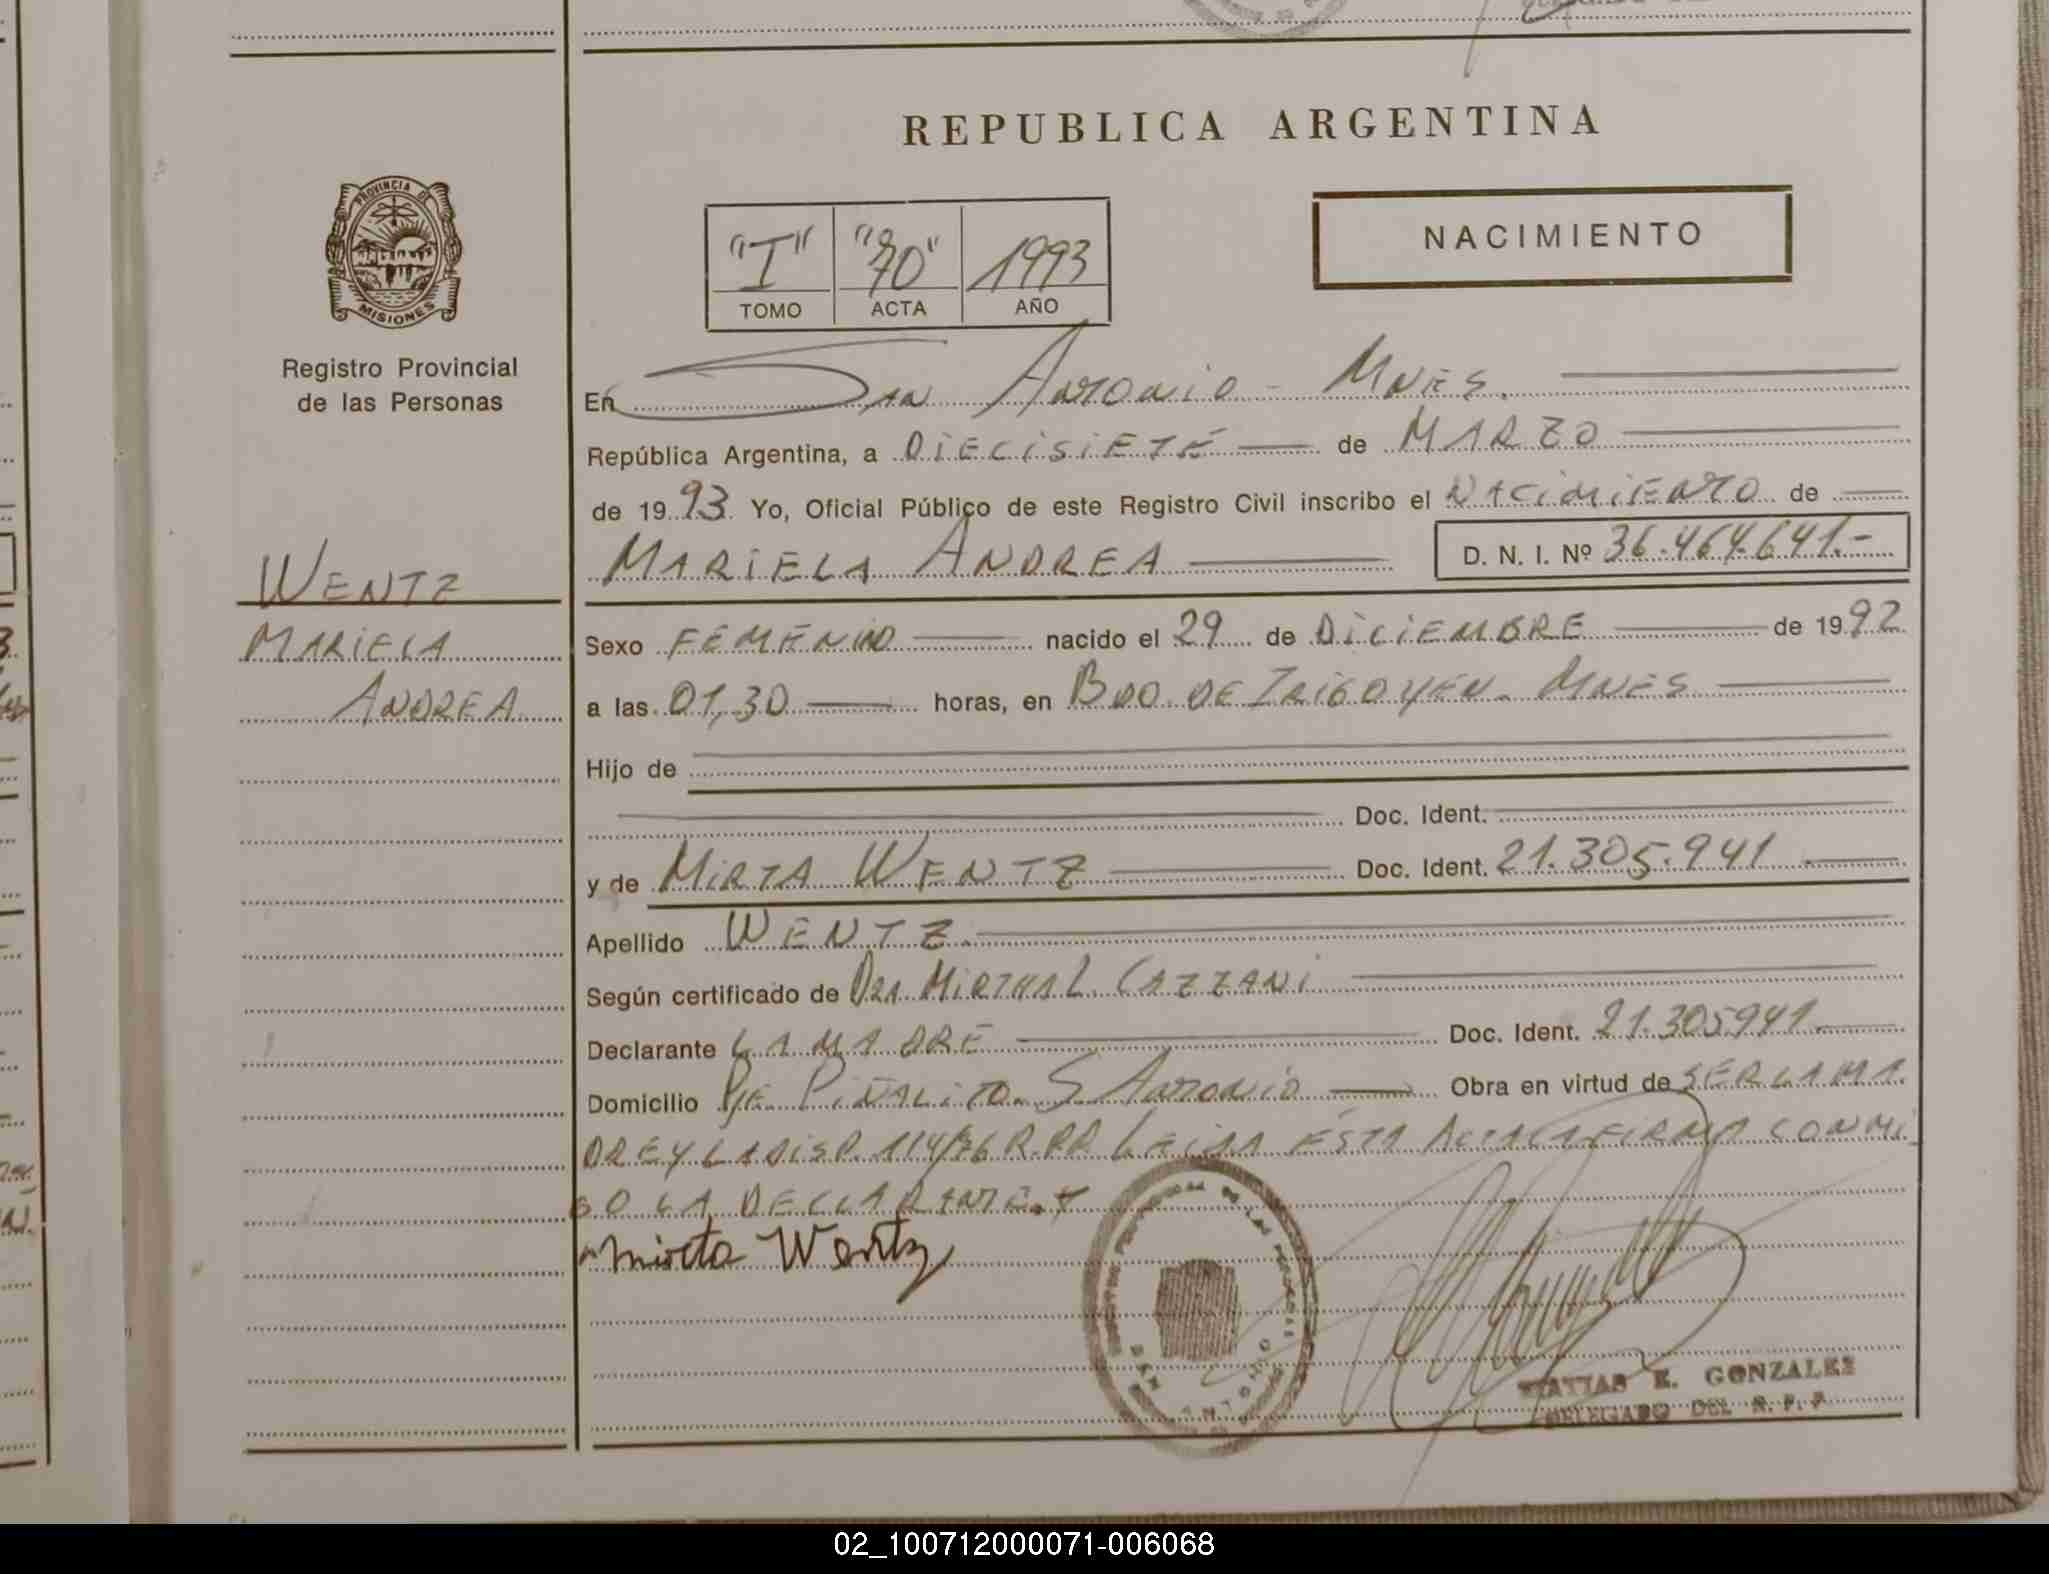 REPUBLICA ARGENTINA
NACIMIENTO
"I" "70" 1993
TOMO ACTA AÑO
PROVINCIA DE
MISIONES
Registro Provincial
de las Personas
WENTZ
MARIELA
ANDREA
En San Antonio - Mnes.
República Argentina, a DIECISIETE de MARZO
de 1993. Yo, Oficial Público de este Registro Civil inscribo el NACIMIENTO de
MARIELA ANDREA D. N. I. Nº 36.464.641.-
Sexo FEMENINO nacido el 29 de DICIEMBRE de 1992
a las 01,30 horas, en BDO. DE IRIGOYEN. MNES
Hijo de
Doc. Ident.
y de MIRTA WENTZ Doc. Ident. 21.305.941
Apellido WENTZ
Según certificado de DRA. MIRTHA L. CAZZANI
Declarante LA MADRE Doc. Ident. 21.305941
Domicilio Pje. PIÑALITO. S. ANTONIO Obra en virtud de SER LA MA
DRE Y LA DISP. 114/86 R.P.P. LEIDA ESTA ACTA LA FIRMA CONMI
GO LA DECLARANTE.
Mirta Wentz
SAN ANTONIO
MATIAS E. GONZALEZ
DELEGADO DEL R. P. P.
02_100712000071-006068